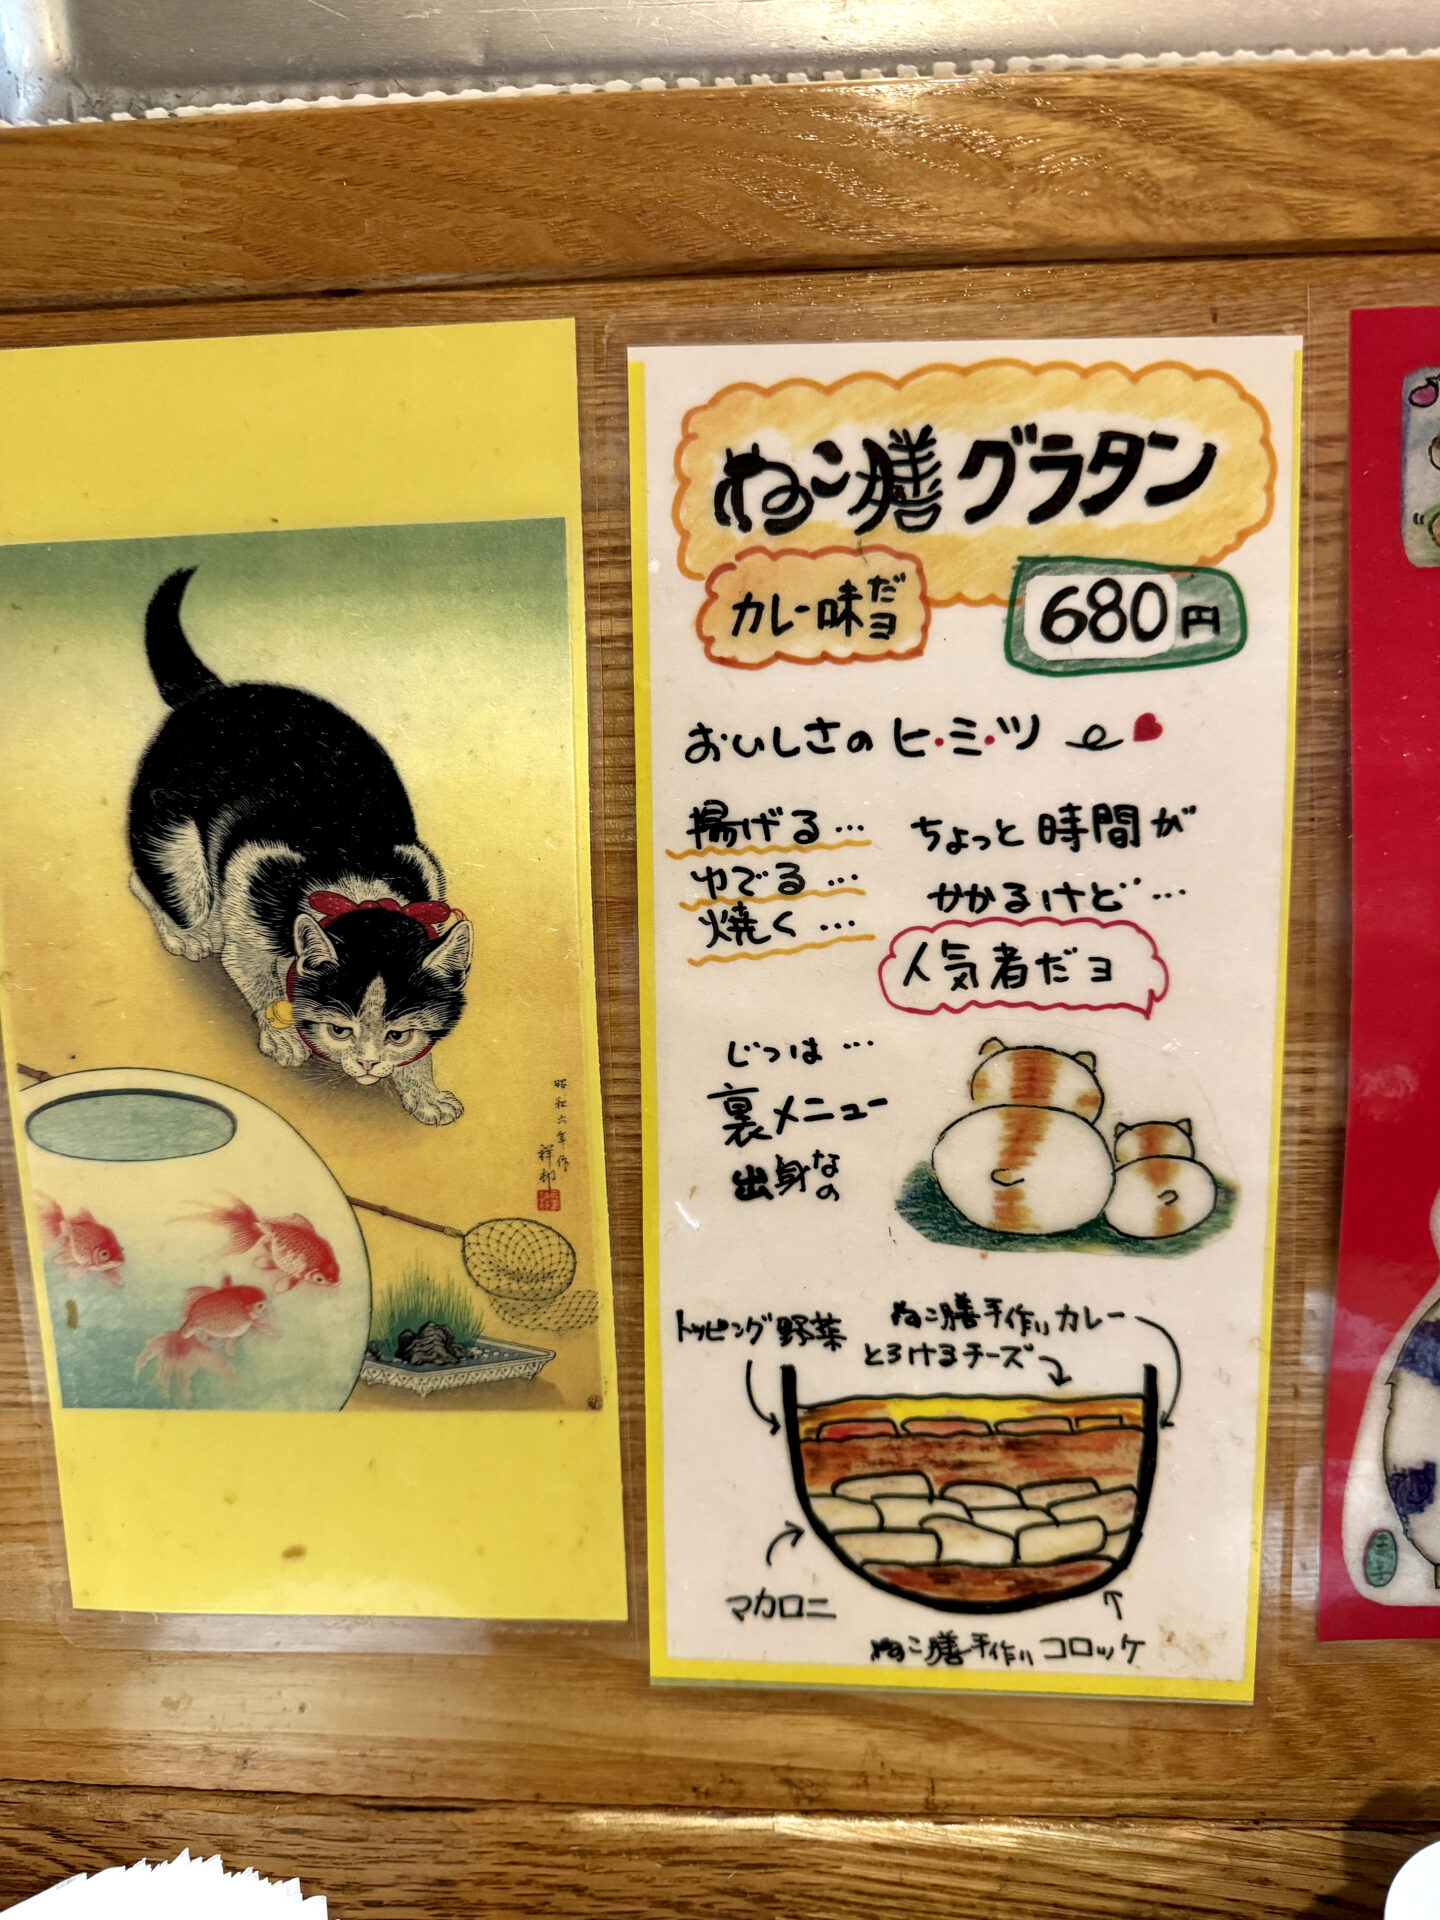 ねこ膳グラタン
カレー味だヨ
680円
おいしさのヒ・ミ・ツ
揚げる…
ゆでる…
焼く…
ちょっと時間が
かかるけど…
人気者だヨ
じつは…
裏メニュー
出身なの
トッピング野菜
ねこ膳手作りカレー
とろけるチーズ
マカロニ
ねこ膳手作りコロッケ
昭和六年作
祥邨